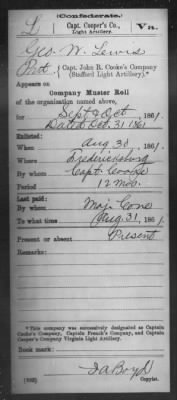 (Confederate.)
L Capt. Cooper's Co., Va.
Light Artillery.
Geo. W. Lewis
Pvt., Capt. John R. Cooke's Company
(Stafford Light Artillery).*
Appears on
Company Muster Roll
of the organization named above,
for Sept & Oct, 1861.
Dated Dec. 31 1861
Enlisted:
When Aug 30, 1861.
Where Fredericksburg
By whom Capt. Cooke
Period 12 mos.
Last paid:
By whom Maj. Cone
To what time Aug 31, 1861.
Present or absent Present
Remarks:
*This company was successively designated as Captain
Cooke's Company, Captain French's Company, and Captain
Cooper's Company Virginia Light Artillery.
Book mark:
Copyist.